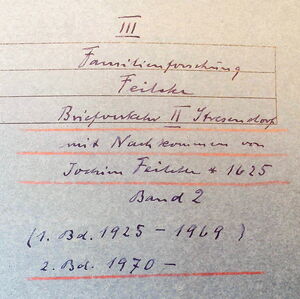 III
Familienforschung
Feilcke
Briefverkehr II Stresendorf
mit Nachkommen von
Jochim Feilcke * 1625
Band 2
(1. Bd. 1925 - 1969 )
2. Bd. 1970 -